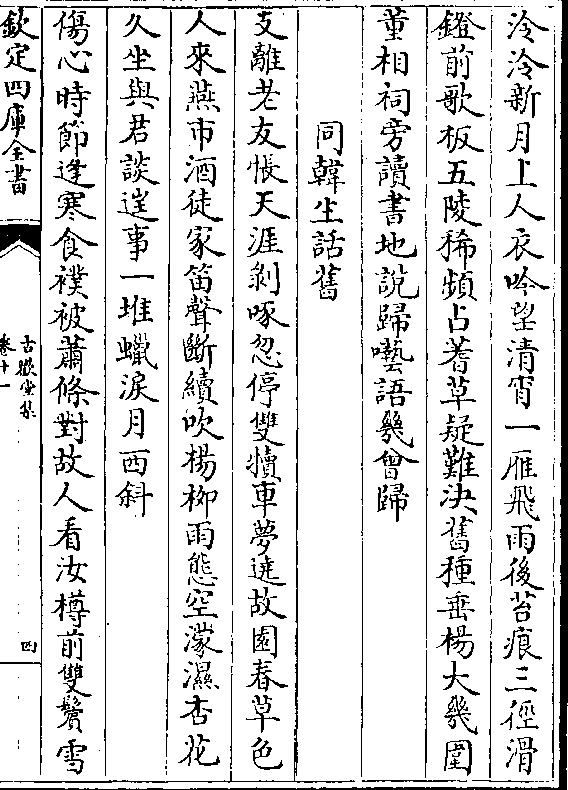 泠泠新月上人衣吟望清宵一雁飛雨後苔痕三徑滑
鐙前歌板五陵稀頻占蓍草疑難決舊種垂楊大幾圍
董相祠旁讀書地說歸囈語幾曾歸
同韓生話舊
支離老友悵天涯剝啄忽停雙犢車夢遶故園春草色
人來燕市酒徒家笛聲斷續吹楊栁雨態空濛濕杏花
久坐與君談遑事一堆蠟淚月西斜
傷心時節逢寒食襆被蕭條對故人看汝樽前雙鬢雪
欽定四庫全書
古懽堂集
卷十一
四